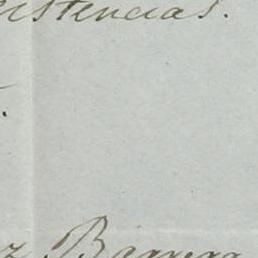 istencias.
z Barrera